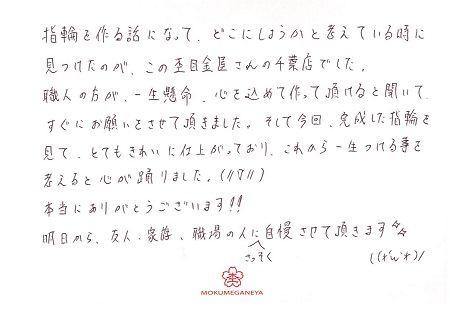 指輪を作る話になって、どこにしようかと考えている時に
見つけたのが、この杢目金屋さんの千葉店でした。
職人の方が、一生懸命、心を込めて作って頂けると聞いて、
すぐにお願いをさせて頂きました。そして今回、完成した指輪を
見て、とてもきれいに仕上がっており、これから一生つける事を
考えると心が踊りました。(〃▽〃)
本当にありがとうございます!!
明日から、友人、家族、職場の人に自慢させて頂きます
さっそく
MOKUMEGANEYA